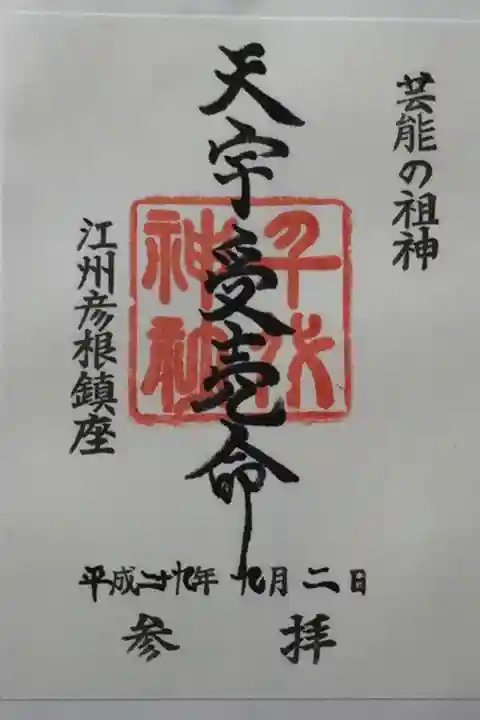 芸能の祖神
天宇受売命
千代神社
江州彦根鎮座
平成二十九年 九月 二日
参拝